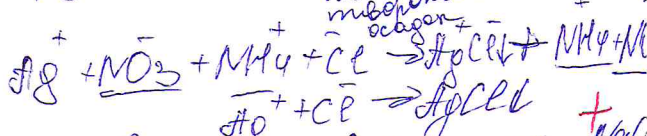 творог
осадок
Ag⁺ + NO₃⁻ + NH₄⁺ + Cl⁻ → AgCl↓ + NH₄⁺ + N
Ag⁺ + Cl⁻ → AgCl↓